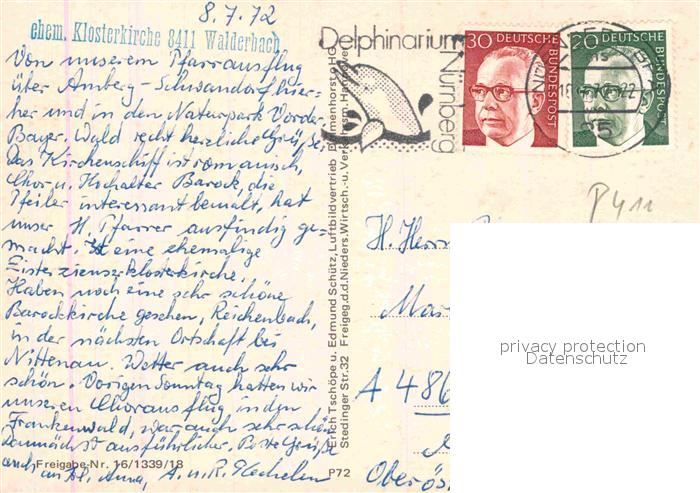 8.7.72
ehem. Klosterkirche 8411 Walderbach
Von unserem Pfarrausflug
über Amberg - Schwandorf hier-
her und in den Naturpark Vorder-
Bayer. Wald recht herzliche Grüße.
Das Kirchenschiff ist romanisch,
Chor u. Hochaltar Barock, die
Pfeiler interessant bemalt, hat
unser H. Pfarrer ausfindig ge-
macht. Ist eine ehemalige
Zisterzienserklosterkirche.
Haben noch eine sehr schöne
Barockkirche gesehen, Reichenbach,
in der nächsten Ortschaft bei
Nittenau. Wetter auch sehr
schön. Vorigen Sonntag hatten wir
unseren Chorausflug in den
Frankenwald, war auch sehr schön
Demnächst ausführlicher. Beste Grüße
auch an Anna, A. u. R.
Freigabe-Nr. 16/1339/18
P72
Erich Tschöpe u. Edmund Schütz, Luftbildvertrieb Delmenhorst oHG
Stedinger Str. 32 Freigeg. d. d. Nieders. Wirtsch.- u. Verk. Msm. Hannover
Delphinarium
Nürnberg
30
DEUTSCHE
BUNDESPOST
20
DEUTSCHE
BUNDESPOST
P411
H. Herrn
Mar
A 486
Oberös
privacy protection
Datenschutz